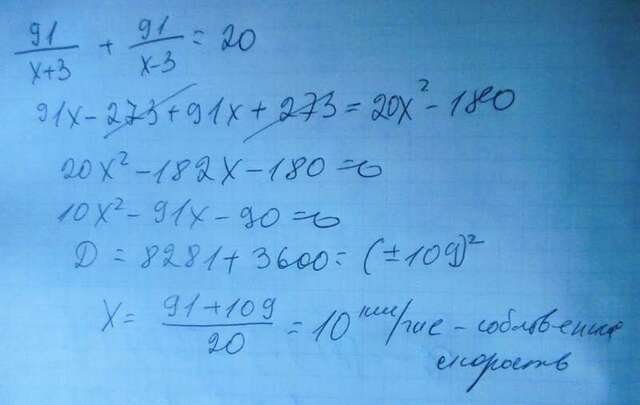 91/(x+3) + 91/(x-3) = 20
91x - 273 + 91x + 273 = 20x² - 180
20x² - 182x - 180 = 0
10x² - 91x - 90 = 0
D = 8281 + 3600 = (±109)²
X = (91+109)/20 = 10 км/час - собственная
скорость